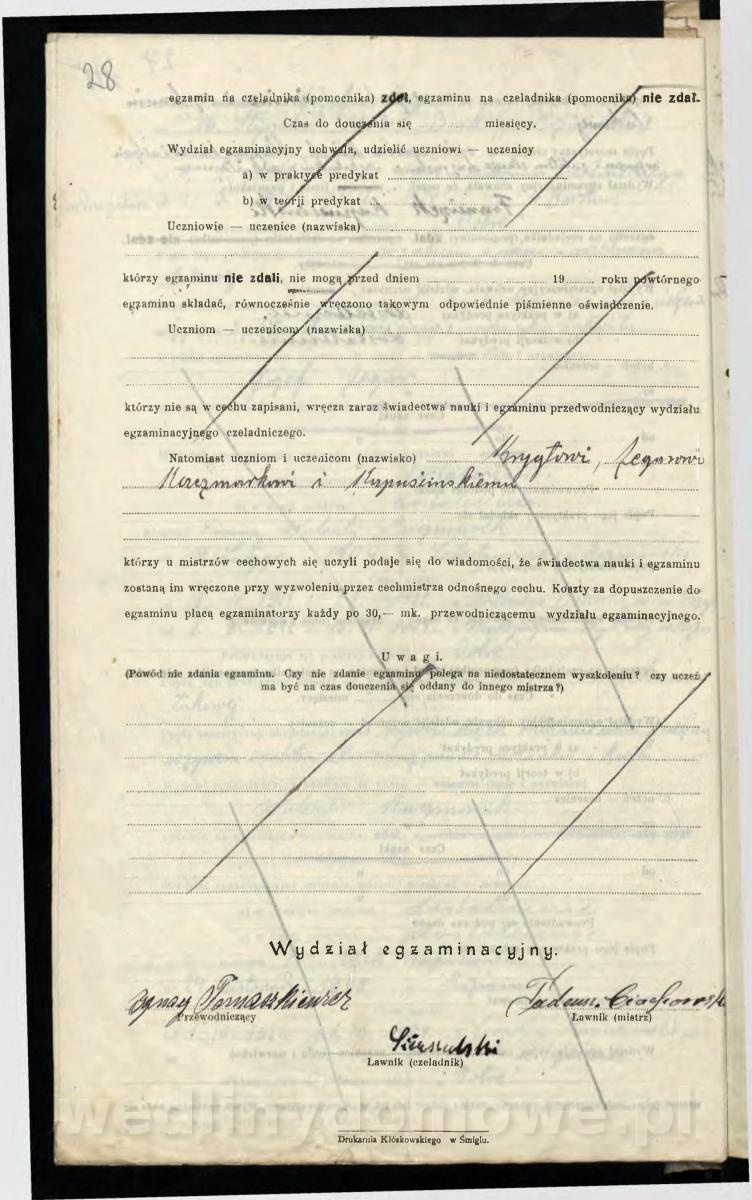 28
egzamin na czeladnika (pomocnika) zdał, egzaminu na czeladnika (pomocnika) nie zdał.
Czas do douczenia się ........ miesięcy.
Wydział egzaminacyjny uchwala, udzielić uczniowi — uczenicy
a) w praktyce predykat ........
b) w teorji predykat ........
Uczniowie — uczenice (nazwiska) ........
którzy egzaminu nie zdali, nie mogą przed dniem ........ 19 ........ roku powtórnego
egzaminu składać, równocześnie wręczono takowym odpowiednie piśmienne oświadczenie.
Uczniom — uczenicom (nazwiska) ........
którzy nie są w cechu zapisani, wręcza zaraz świadectwa nauki i egzaminu przedwodniczący wydziału
egzaminacyjnego czeladniczego.
Natomiast uczniom i uczenicom (nazwisko) ........ Krygłowi,
Kaczmarkowi i Kapuścinskiemu
którzy u mistrzów cechowych się uczyli podaje się do wiadomości, że świadectwa nauki i egzaminu
zostaną im wręczone przy wyzwoleniu przez cechmistrza odnośnego cechu. Koszty za dopuszczenie do
egzaminu płacą egzaminatorzy każdy po 30,— mk. przewodniczącemu wydziału egzaminacyjnego.
Uwagi.
(Powód nie zdania egzaminu. Czy nie zdanie egzaminu polega na niedostatecznem wyszkoleniu? czy uczeń
ma być na czas douczenia się oddany do innego mistrza?)
Wydział egzaminacyjny.
Ignacy Tomaszkiewicz
Tadeusz
Przewodniczący
Ławnik (mistrz)
Ławnik (czeladnik)
wedlinydomowe.pl
Drukarnia Kłóskowskiego w Śmiglu.